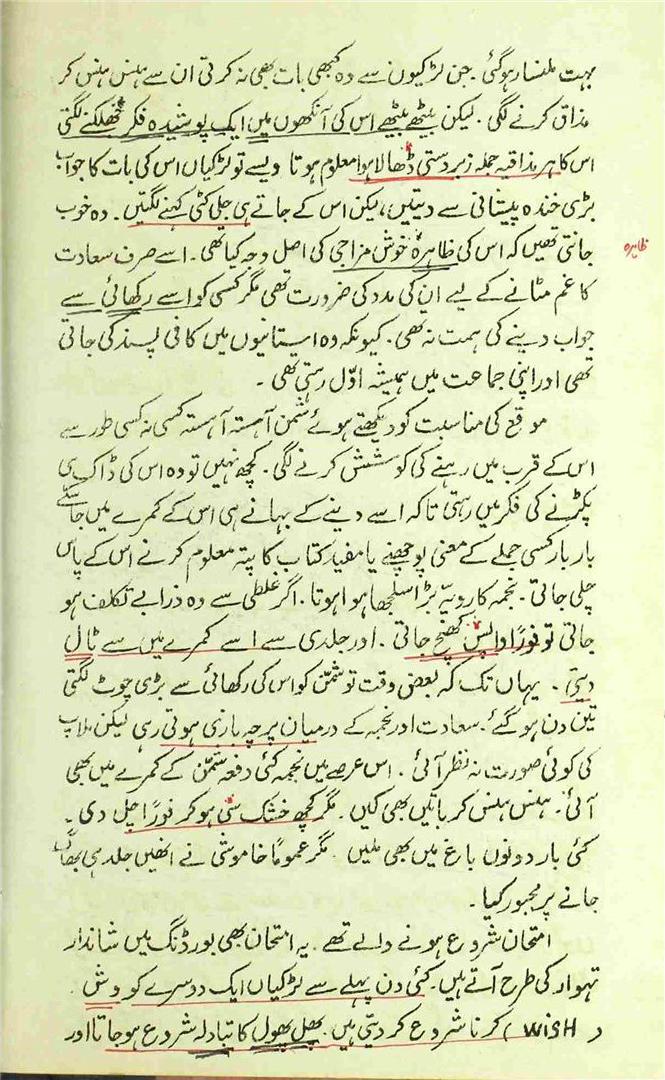 بہت ملنسار ہوگئی۔ جن لڑکیوں سے وہ کبھی بات بھی نہ کرتی ان سے ہنس ہنس کر
مذاق کرنے لگی۔ لیکن بیٹھے بیٹھے اس کی آنکھوں میں ایک پوشیدہ فکر جھلکنے لگتی
اس کا ہر مذاقیہ جملہ زبردستی ڈھالا ہوا معلوم ہوتا ویسے تو لڑکیاں اس کی بات کا جواب
بڑی خندہ پیشانی سے دیتیں، لیکن اس کے جاتے ہی جلی کٹی کہنے لگتیں۔ وہ خوب
جانتی تھیں کہ اس کی ظاہرہ خوش مزاجی کی اصل وجہ کیا تھی۔ اسے صرف سعادت
ظاہرہ
کا غم مٹانے کے لیے ان کی مدد کی ضرورت تھی مگر کسی کو اسے رکھائی سے
جواب دینے کی ہمت نہ تھی۔ کیونکہ وہ استانیوں میں کافی پسند کی جاتی
تھی اور اپنی جماعت میں ہمیشہ اوّل رہتی تھی۔
موقع کی مناسبت کو دیکھتے ہوئے شمن آہستہ آہستہ کسی نہ کسی طور سے
اس کے قرب میں رہنے کی کوشش کرنے لگی۔ کچھ نہیں تو وہ اس کی ڈاک ہی
پکڑنے کی فکر میں رہتی تاکہ اسے دینے کے بہانے ہی اس کے کمرے میں جا سکے
بار بار کسی جملے کے معنی پوچھنے یا مفید کتاب کا پتہ معلوم کرنے اس کے پاس
چلی جاتی۔ نجمہ کا رویہ بڑا سلجھا ہوا ہوتا۔ اگر غلطی سے وہ ذرا بے تکلف ہو
جاتی تو فوراً واپس کھنچ جاتی۔ اور جلدی سے اسے کمرے میں سے ٹال
دیتی۔ یہاں تک کہ بعض وقت تو شمن کو اس کی رکھائی سے بڑی چوٹ لگتی
تین دن ہوگئے۔ سعادت اور نجمہ کے درمیان پرچہ بازی ہوتی رہی لیکن ملاپ
کی کوئی صورت نہ نظر آئی۔ اس عرصے میں نجمہ کئی دفعہ شمن کے کمرے میں بھی
آئی۔ ہنس ہنس کر باتیں بھی کیں۔ مگر کچھ خشک سی ہو کر فوراً چل دی۔
کئی بار دونوں باغ میں بھی ملیں مگر عموماً خاموشی نے انھیں جلد ہی بھاگ
جانے پر مجبور کیا۔
امتحان شروع ہونے والے تھے۔ یہ امتحان بھی بورڈنگ میں شاندار
تہوار کی طرح آتے ہیں۔ کئی دن پہلے سے لڑکیاں ایک دوسرے کو وش
(WISH) کرنا شروع کر دیتی ہیں۔ پھل پھول کا تبادلہ شروع ہو جاتا اور